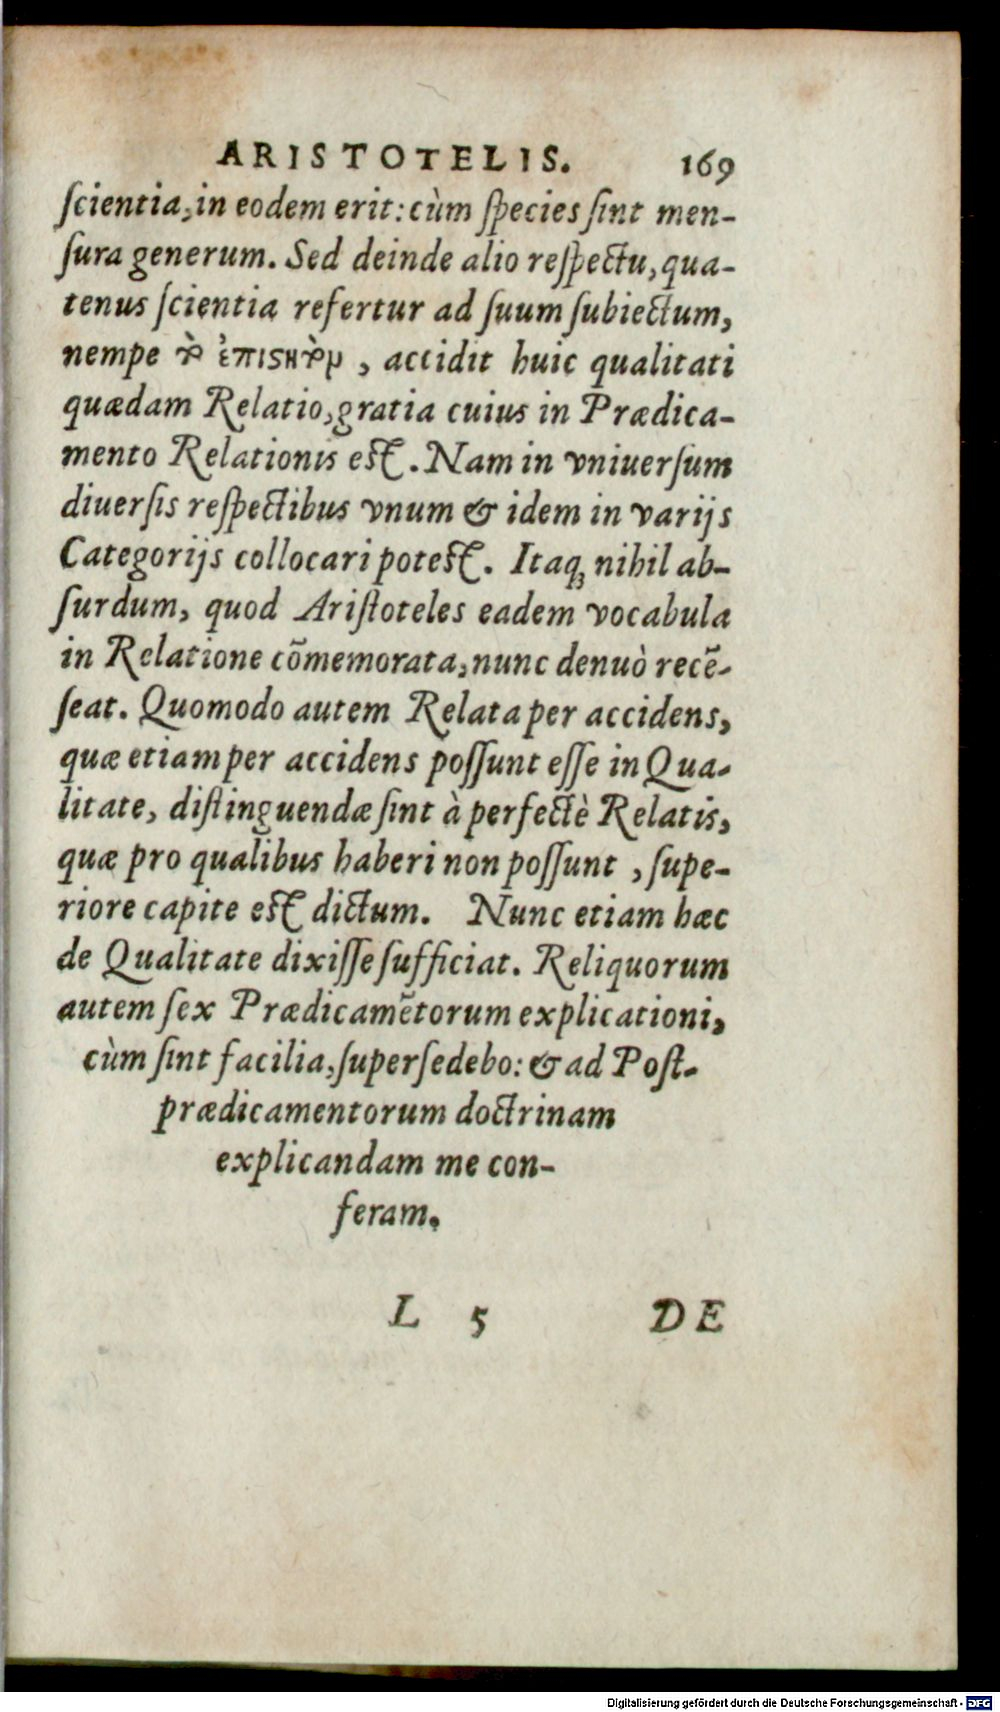 ARISTOTELIS. 169
ſcientia, in eodem erit: cùm ſpecies ſint men-
ſura generum. Sed deinde alio reſpectu, qua-
tenus ſcientia refertur ad suum ſubiectum,
nempe , accidit huic qualitati
quædam Relatio, gratia cuius in Prædica-
mento Relationis eſt. Nam in vniuerſum
diuerſis reſpectibus vnum & idem in varijs
Categorijs collocari poteſt. Itaq; nihil ab-
ſurdum, quod Ariſtoteles eadem vocabula
in Relatione cōmemorata, nunc denuò recē-
ſeat. Quomodo autem Relata per accidens,
quæ etiam per accidens poſſunt eſſe in Qua-
litate, diſtinguendæ ſint à perfectè Relatis,
quæ pro qualibus haberi non poſſunt, ſupe-
riore capite eſt dictum. Nunc etiam hæc
de Qualitate dixiſſe ſufficiat. Reliquorum
autem ſex Prædicamētorum explicationi,
cùm ſint facilia, ſuperſedebo: & ad Poſt-
prædicamentorum doctrinam
explicandam me con-
feram.
L 5 DE
Digitalisierung gefördert durch die Deutsche Forschungsgemeinschaft - DFG